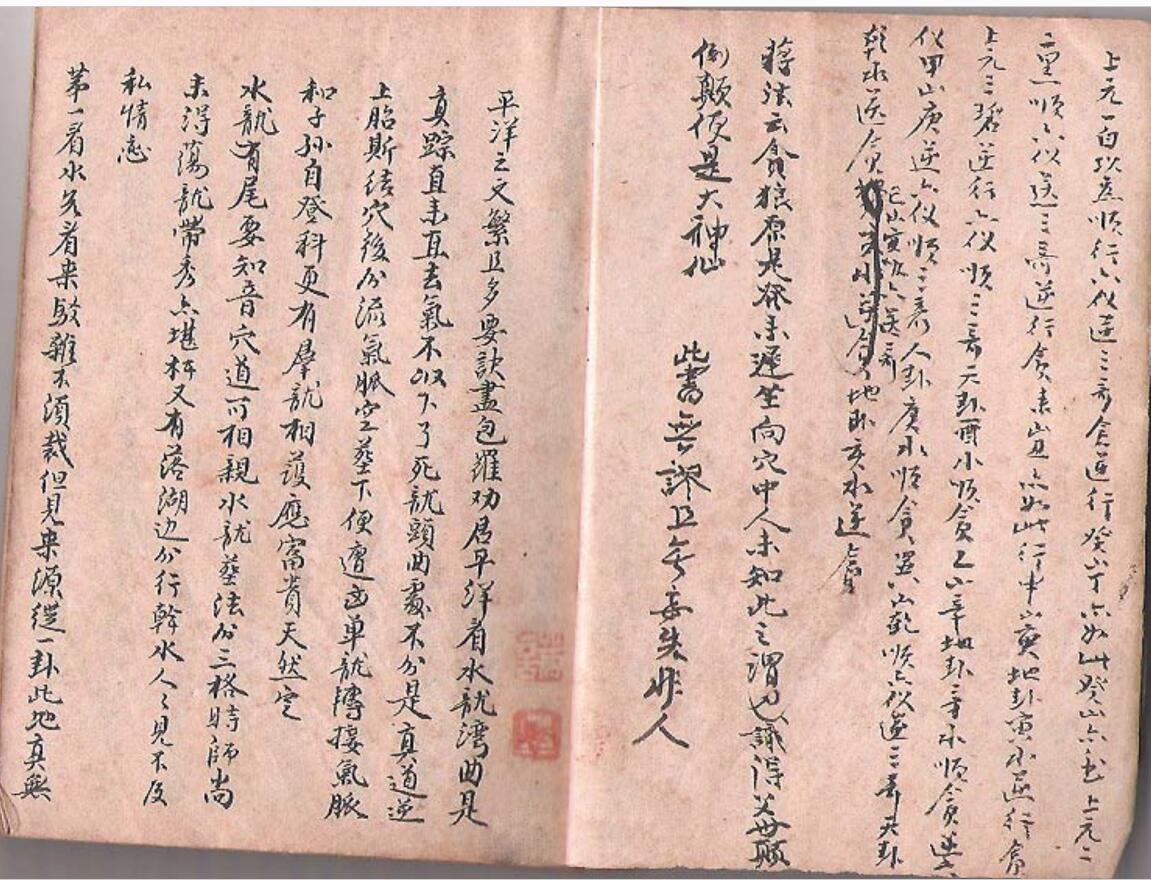 上元一白坎卦順行六儀逆三奇貪逆行癸山丁六如此癸山六也上元二
二黑順六儀逆三奇逆行貪未山丑六如此行申山寅地卦寅水逆行貪
上元三碧逆行六儀順三奇天卦酉水順貪乙山辛地卦辛水順貪逆
儀甲山庚逆六儀順三奇人卦庚水順貪巽山乾順六儀逆三奇天卦
乾水逆貪
巳山亥順六逆奇
地卦亥水逆貪
蔣法云貪狼原是發來遲坐向穴中人未知此之謂也識得父母顛
倒顛便是大神仙
此書無謬且無妄失非人
平洋之文繁且多要訣盡包羅功居平洋看水龍灣曲是
真踪直來直去氣不收下了死龍頭曲處不分是真道逆
上胎斯結穴後分流氣脈空葬下便遭凶單龍轉接氣脈
和子孫自登科更有羣龍相護應富貴天然定
水龍有尾要知音穴道可相親水龍葬法分三格時師尚
未得蕩龍帶秀亦堪杯又有落湖边分行幹水人々見不及
私情恋
第一看水先看來駁雜不須裁但見來源從一卦此地真無